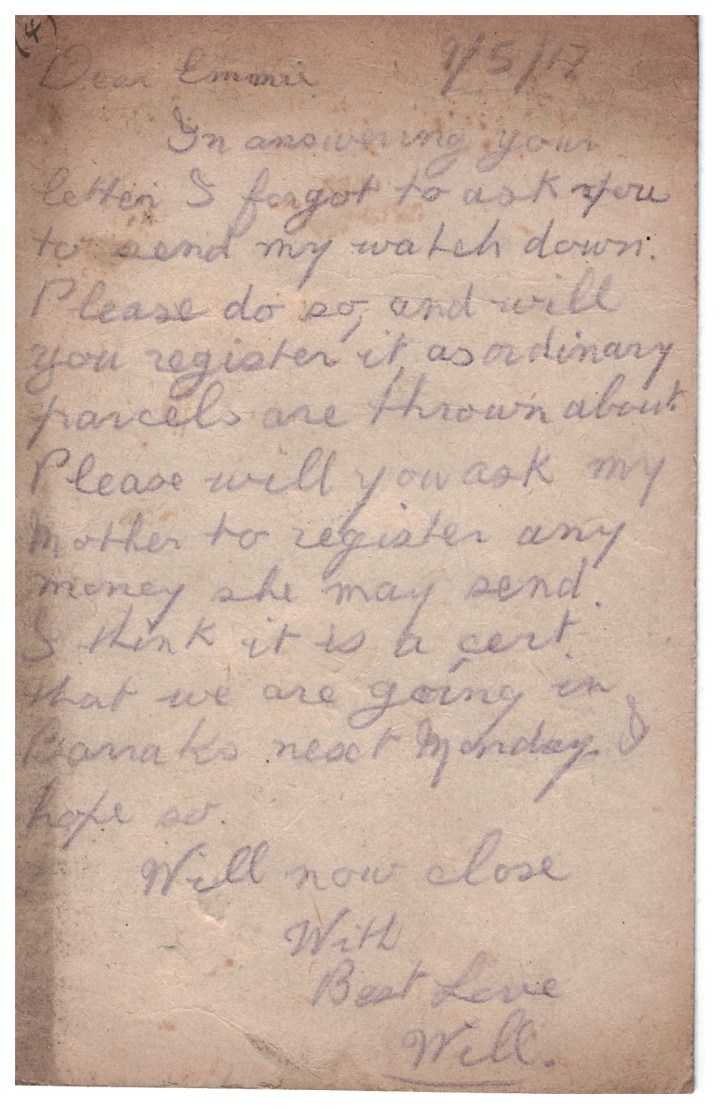 (4)
Dear Emmie 9/5/17
In answering your
letter I forgot to ask you
to send my watch down.
Please do so, and will
you register it as ordinary
parcels are thrown about.
Please will you ask my
Mother to register any
money she may send.
I think it is a cert.
that we are going in
Barraks next Monday. I
hope so.
Will now close
With
Best Love
Will.